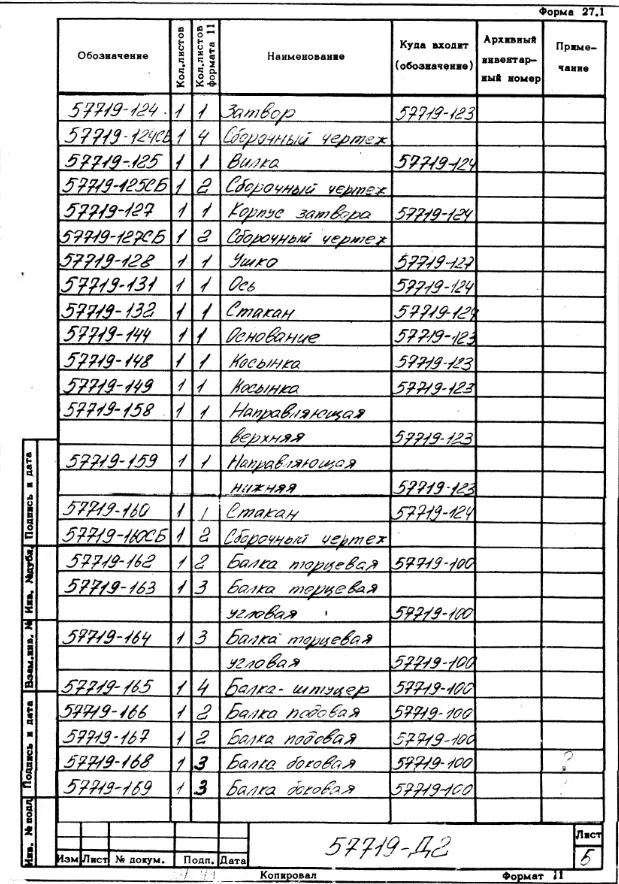 Форма 27.1
Обозначение Кол.листов Кол.листов формата 11 Наименование Куда входит (обозначение) Архивный инвентарный номер Примечание
57719-124 1 1 Затвор 57719-123
57719-124СБ 1 4 Сборочный чертеж
57719-125 1 1 Вилка 57719-124
57719-125СБ 1 2 Сборочный чертеж
57719-127 1 1 Корпус затвора 57719-124
57719-127СБ 1 2 Сборочный чертеж
57719-128 1 1 Ушко 57719-127
57719-131 1 1 Ось 57719-124
57719-132 1 1 Стакан 57719-124
57719-144 1 1 Основание 57719-123
57719-148 1 1 Косынка 57719-123
57719-149 1 1 Косынка 57719-123
57719-158 1 1 Направляющая
верхняя 57719-123
57719-159 1 1 Направляющая
нижняя 57719-123
57719-160 1 1 Стакан 57719-124
57719-160СБ 1 2 Сборочный чертеж
57719-162 1 2 Балка торцевая 57719-100
57719-163 1 3 Балка торцевая
угловая 57719-100
57719-164 1 3 Балка торцевая
угловая 57719-100
57719-165 1 4 Балка-штуцер 57719-100
57719-166 1 2 Балка подовая 57719-100
57719-167 1 2 Балка подовая 57719-100
57719-168 1 3 Балка боковая 57719-100
57719-169 1 3 Балка боковая 57719-100
Подпись и дата
Инв. №дубл.
Взам.инв. №
Подпись и дата
Инв. №подл
Изм Лист № докум. Подп. Дата
57719-Д2
Лист
5
Копировал Формат 11